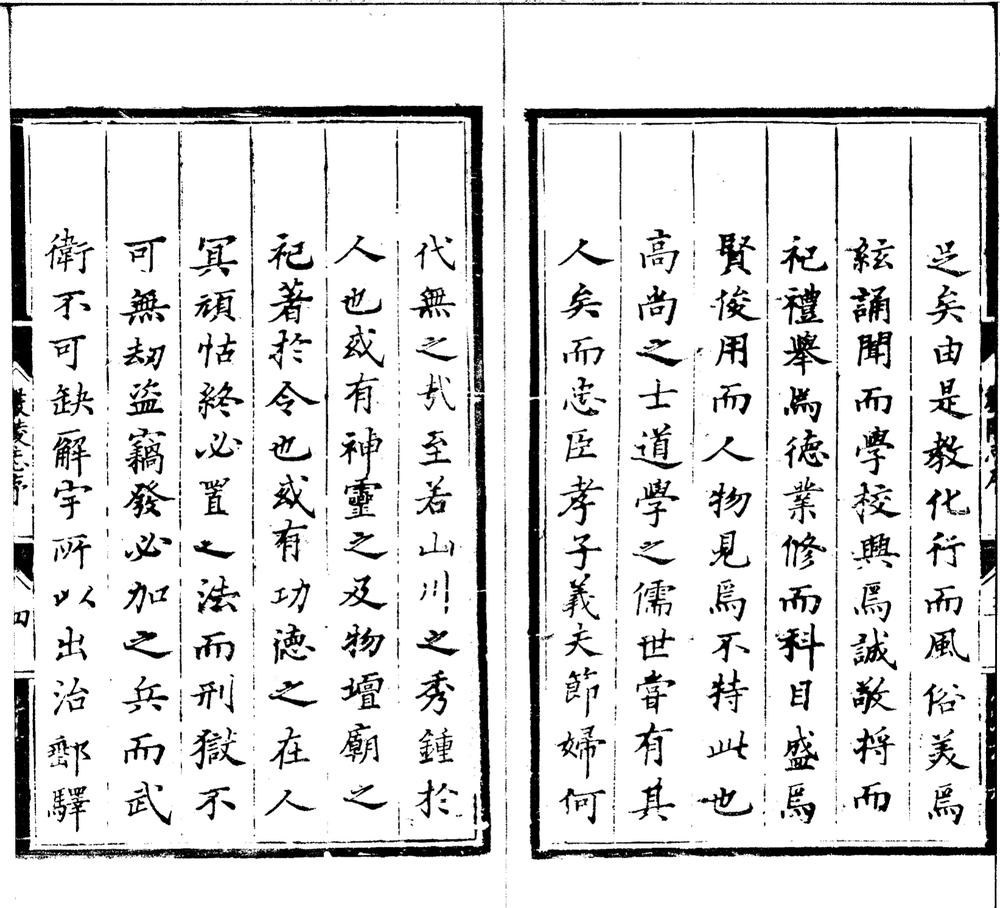 足矣由是教化行而風俗美焉
絃誦聞而學校興焉誠敬將而
祀禮舉焉德業修而科目盛焉
賢俊用而人物見焉不特此也
高尚之士道學之儒世嘗有其
人矣而忠臣孝子義夫節婦何
代無之哉至若山川之秀鍾於
人也或有神靈之及物壇廟之
祀著於令也或有功德之在人
冥頑怙終必置之法而刑獄不
可無劫盜竊發必加之兵而武
衛不可缺廨宇所以出治郵驛
陵志序
四